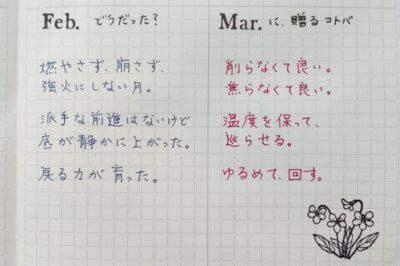 Feb. どうだった？
燃やさず、崩さず、
強火にしない月。
派手な前進はないけど
底が静かに上がった。
戻る力が育った。
Mar. に、贈る コトバ
削らなくて良い。
焦らなくて良い。
温度を保って、
巡らせる。
ゆるめて、回す。